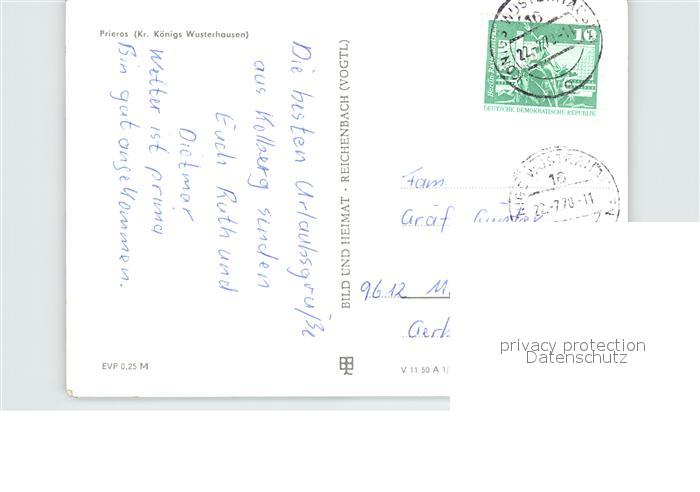 Prieros (Kr. Königs Wusterhausen)
Die besten Urlaubsgrüße
aus Kolberg senden
Euch Ruth und
Dietmar
Wetter ist prima
Bin gut angekommen.
EVP 0,25 M
BILD UND HEIMAT · REICHENBACH (VOGTL)
V 11 50 A 1/
10
DEUTSCHE DEMOKRATISCHE REPUBLIK
16
22.-7.78-11
Fam.
Gräf
9612 M
privacy protection
Datenschutz